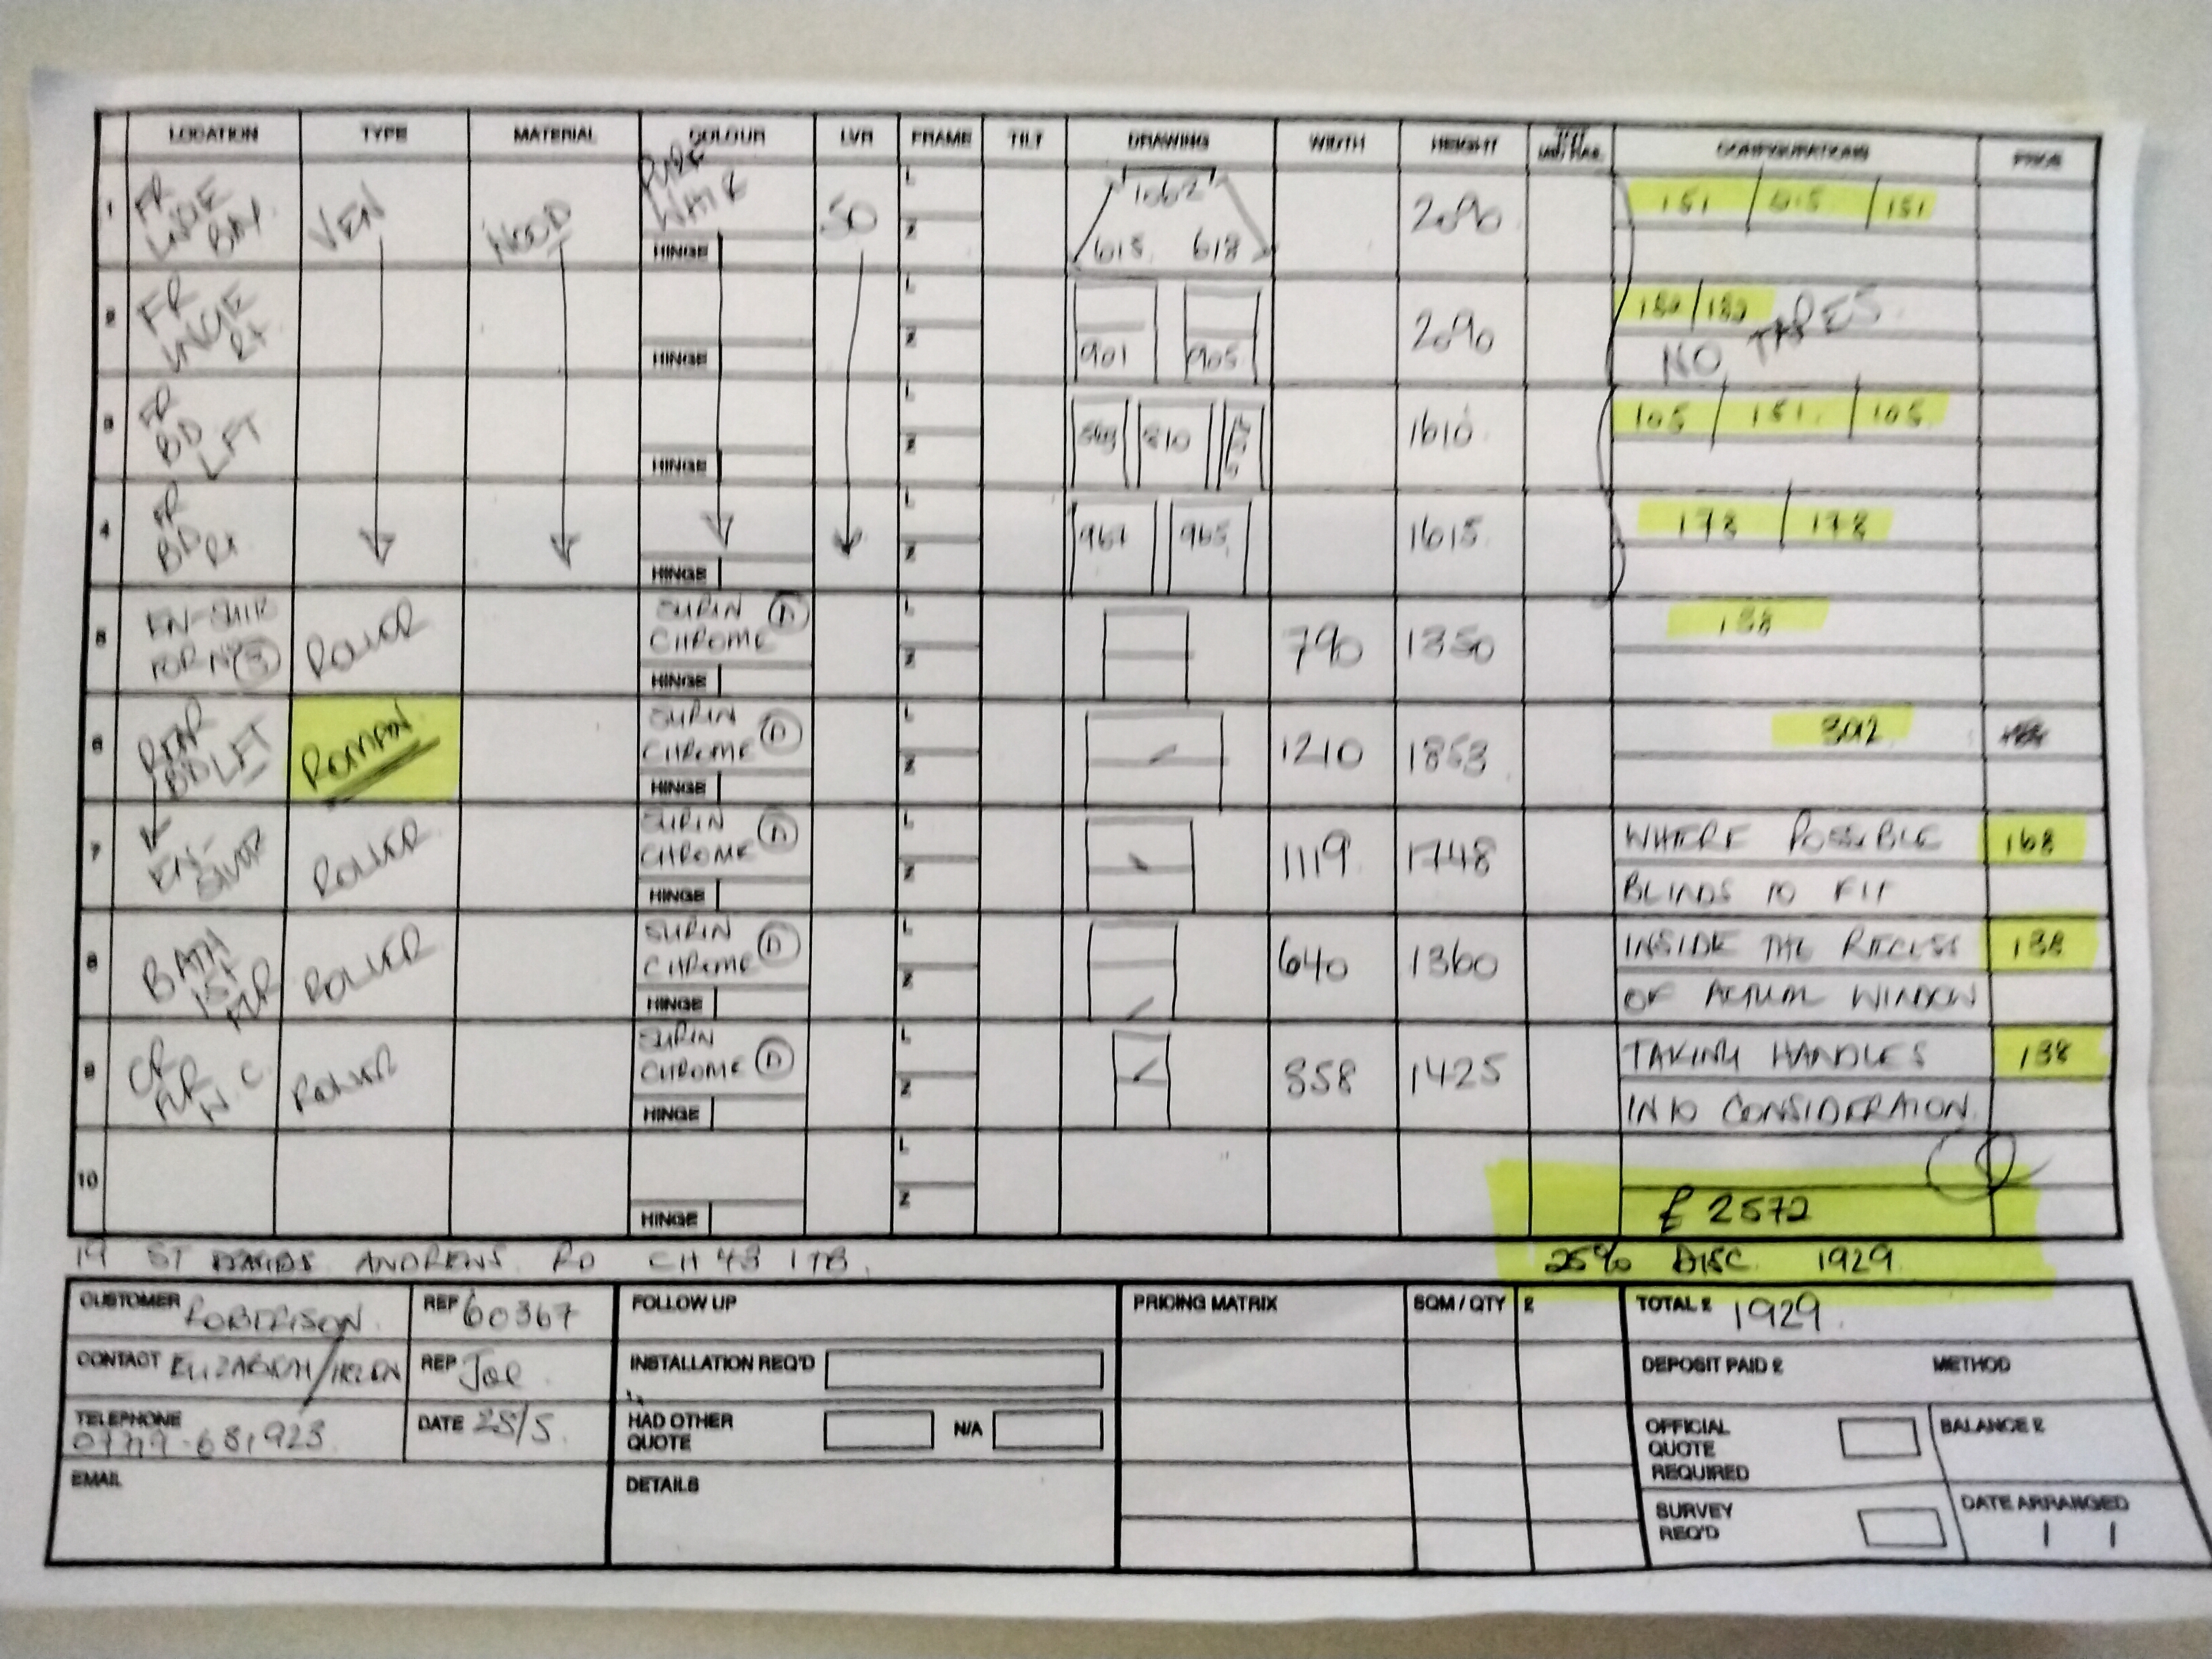 LOCATION TYPE MATERIAL COLOUR LVR FRAME TILT DRAWING WIDTH HEIGHT CONFIGURATIONS PRICE
1 FR LNGE BAY VEN WOOD PURE WHITE 50 L Z HINGE 1062 618 618 2090 151 / / 151
2 FR LNGE RT L Z HINGE 901 905 2090 182/182
NO TAPES
3 FR BD LFT L Z HINGE 810 1610 105 / 151 / 105
4 FR BD RT L Z HINGE 967 965 1615 178 / 178
5 EN-SUITE FOR NO (3) ROLLER SURIN CHROME (D) L Z HINGE 790 1350 138
6 REAR BD LFT ROMAN SURIN CHROME (D) L Z HINGE 1210 1853 302
7 EN-SUITE ROLLER SURIN CHROME (D) L Z HINGE 1119 1748 WHERE POSSIBLE 168
BLINDS TO FIT
8 BATH 1ST FLR ROLLER SURIN CHROME (D) L Z HINGE 640 1360 INSIDE THE RECESS 138
OF ACTUAL WINDOW
9 GR FLR W.C. ROLLER SURIN CHROME (D) L Z HINGE 858 1425 TAKING HANDLES 138
INTO CONSIDERATION
10 L Z HINGE
£ 2572
19 ST ANDREWS RD CH43 1TB.
25% DISC 1929
CUSTOMER ROBERTSON REF 60367 FOLLOW UP PRICING MATRIX SQM / QTY £ TOTAL £ 1929
CONTACT ELIZABETH/HELEN REP Joe INSTALLATION REQ'D DEPOSIT PAID £ METHOD
TELEPHONE DATE 25/5 HAD OTHER QUOTE N/A OFFICIAL QUOTE REQUIRED BALANCE £
EMAIL DETAILS SURVEY REQ'D DATE ARRANGED